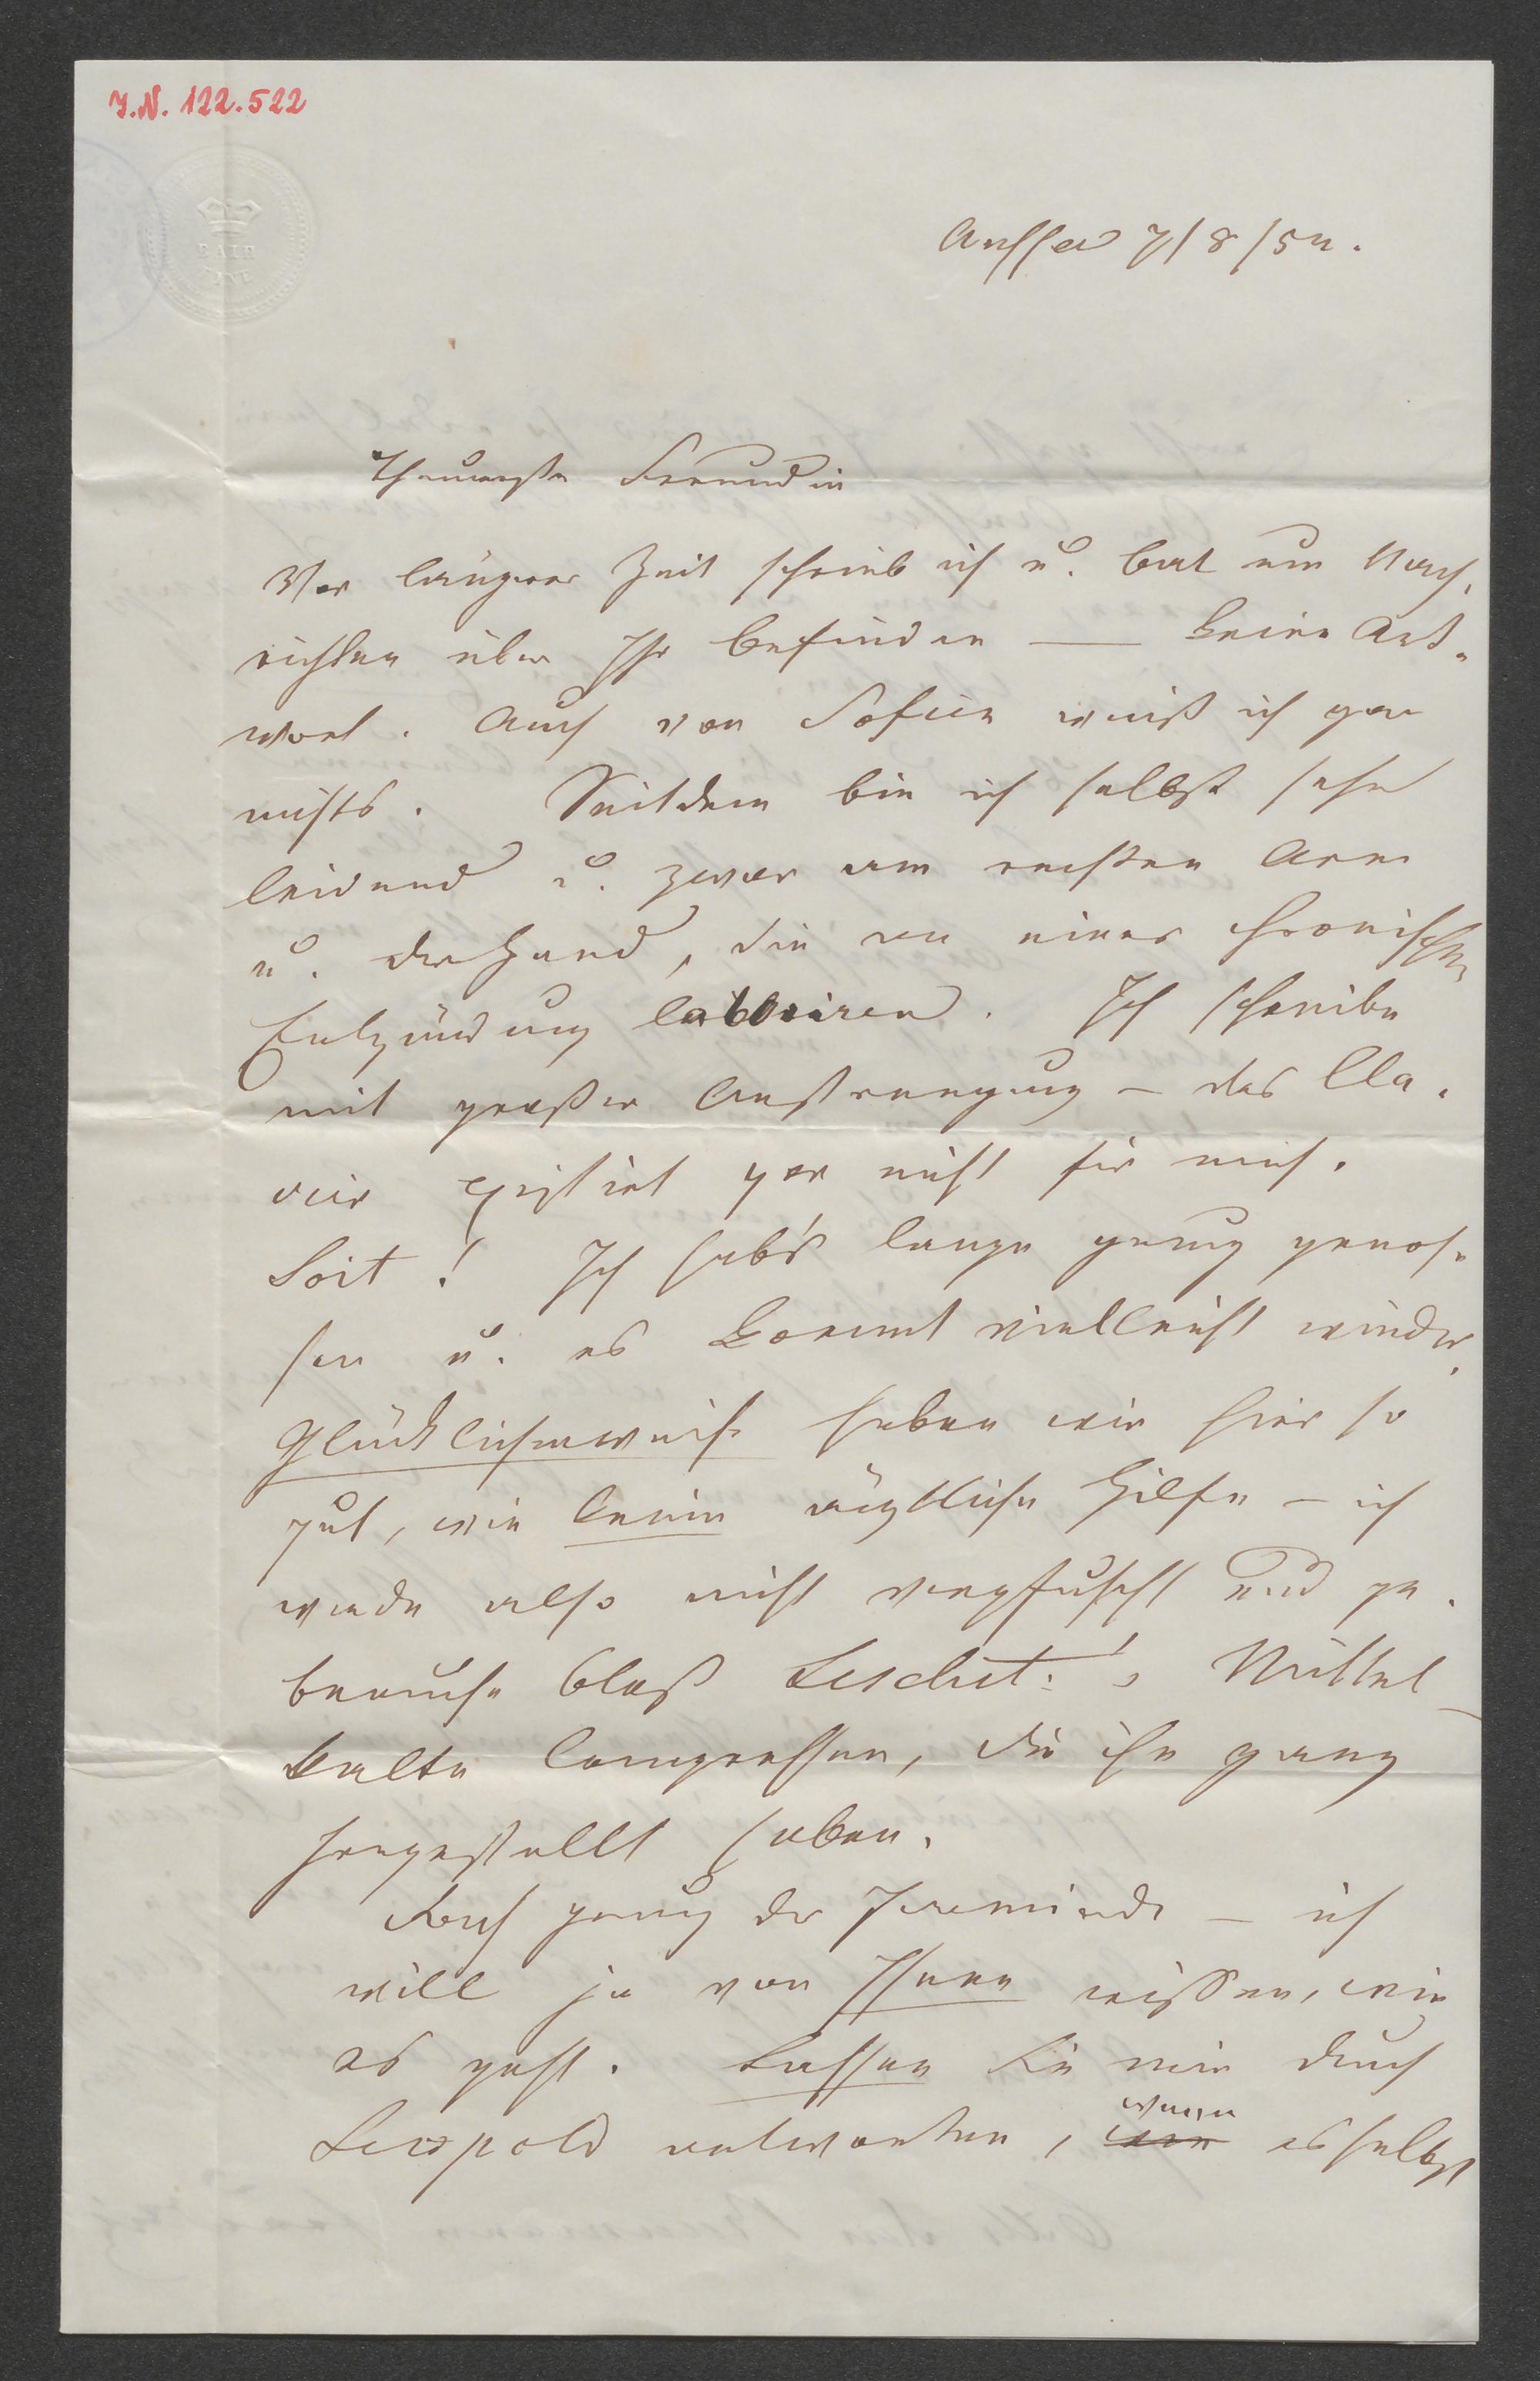 J.N. 122.522
BATH
Aussee 7/8/54.
Theuerste Freundin
Vor längerer Zeit schrieb ich u. bat um Nach-
richten über Ihr Befinden — keine Ant-
wort. Auch von Sofien weiß ich gar
nichts. Seitdem bin ich selbst sehr
leidend u. zwar am rechten Arm
u. der Hand, die an einer chronischen
Entzündung laboriren. Ich schreibe
mit großer Anstrengung – das Cla-
vier existirt gar nicht für mich.
Soit! Ich hab's lange genug genos-
sen u. es kommt vielleicht wieder.
Glücklicherweise haben wir hier so
gut, wie keine ärztliche Hilfe – ich
werde also nicht verpfuscht und ge-
brauche bloß Leschet:'s Mittel –
kalte Compressen, die ihn ganz
hergestellt haben.
Doch genug der Jeremiade – ich
will ja von Ihnen wissen, wie
es geht. Lassen Sie mir durch
Leopold antworten, wenn es selbst